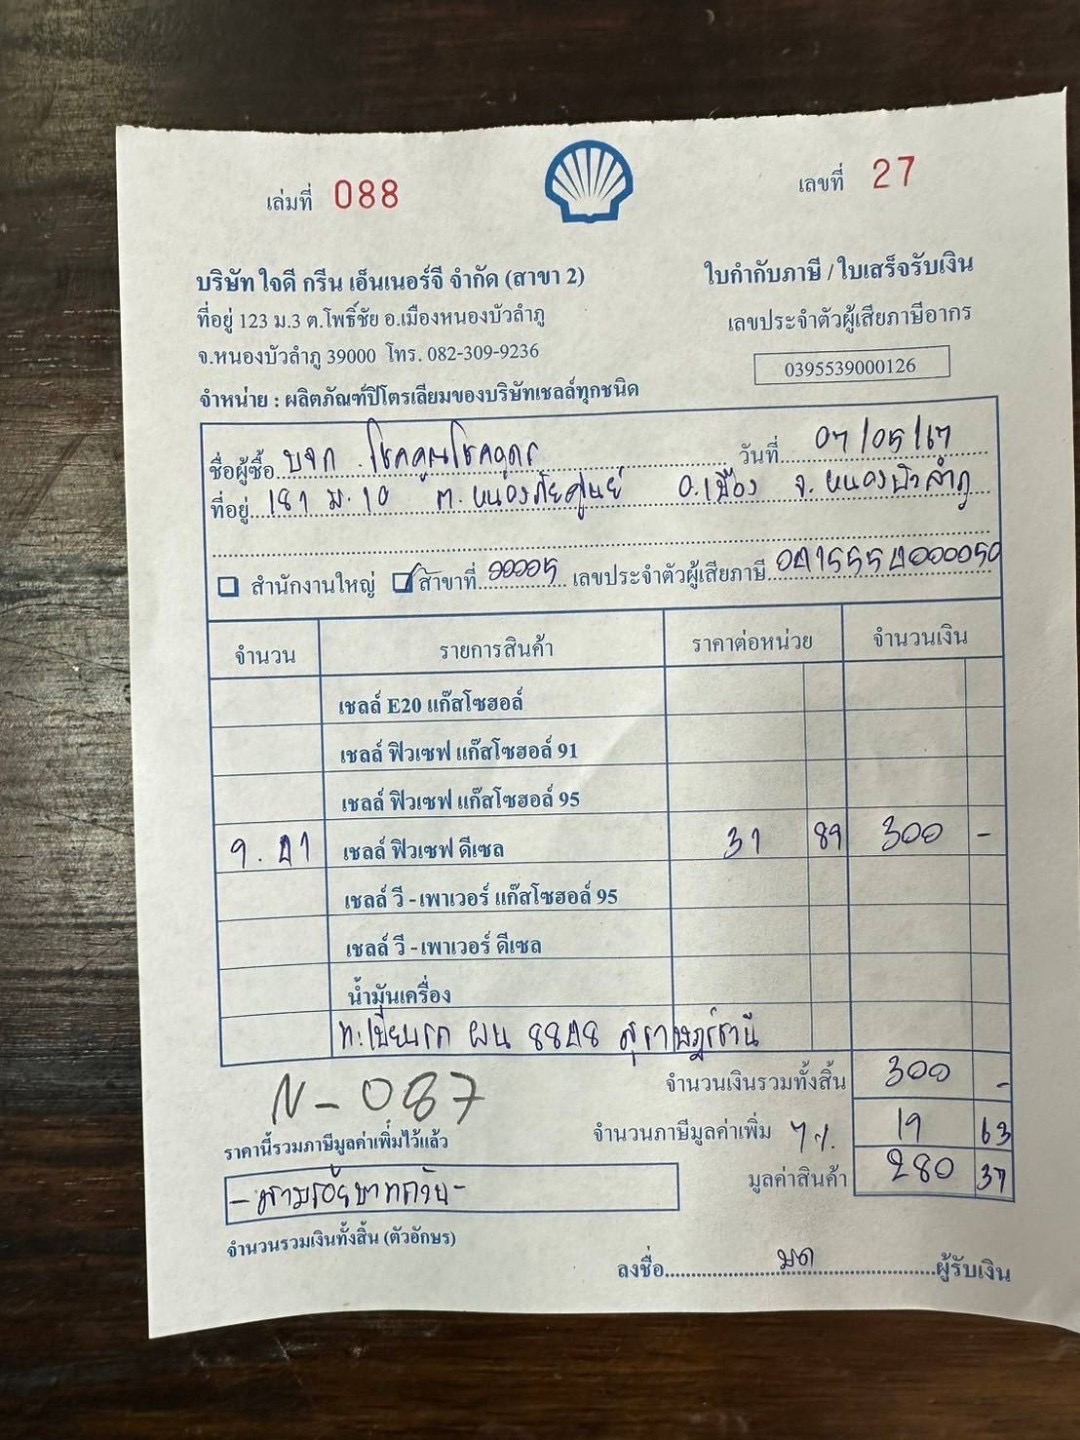 เล่มที่ 088
เลขที่ 27
บริษัท ใจดี กรีน เอ็นเนอร์จี จำกัด (สาขา 2)
ใบกำกับภาษี / ใบเสร็จรับเงิน
ที่อยู่ 123 ม.3 ต.โพธิ์ชัย อ.เมืองหนองบัวลำภู
เลขประจำตัวผู้เสียภาษีอากร
จ.หนองบัวลำภู 39000 โทร. 082-309-9236
0395539000126
จำหน่าย : ผลิตภัณฑ์ปิโตรเลียมของบริษัทเชลล์ทุกชนิด
ชื่อผู้ซื้อ บจก. โชคคูณโชคอุดร วันที่ 07/05/67
ที่อยู่ 181 ม.10 ต.หนองภัยศูนย์ อ.เมือง จ.หนองบัวลำภู
สำนักงานใหญ่ สาขาที่ 00005 เลขประจำตัวผู้เสียภาษี
จำนวน รายการสินค้า ราคาต่อหน่วย จำนวนเงิน
เชลล์ E20 แก๊สโซฮอล์
เชลล์ ฟิวเซฟ แก๊สโซฮอล์ 91
เชลล์ ฟิวเซฟ แก๊สโซฮอล์ 95
9.41 เชลล์ ฟิวเซฟ ดีเซล 31 89 300 -
เชลล์ วี - เพาเวอร์ แก๊สโซฮอล์ 95
เชลล์ วี - เพาเวอร์ ดีเซล
น้ำมันเครื่อง
ทะเบียนรถ ผน 8848 สุราษฎร์ธานี
จำนวนเงินรวมทั้งสิ้น 300 -
N-087
ราคานี้รวมภาษีมูลค่าเพิ่มไว้แล้ว
จำนวนภาษีมูลค่าเพิ่ม 7% 19 63
มูลค่าสินค้า 280 37
-สามร้อยบาทถ้วน-
จำนวนรวมเงินทั้งสิ้น (ตัวอักษร)
ลงชื่อ มด ผู้รับเงิน